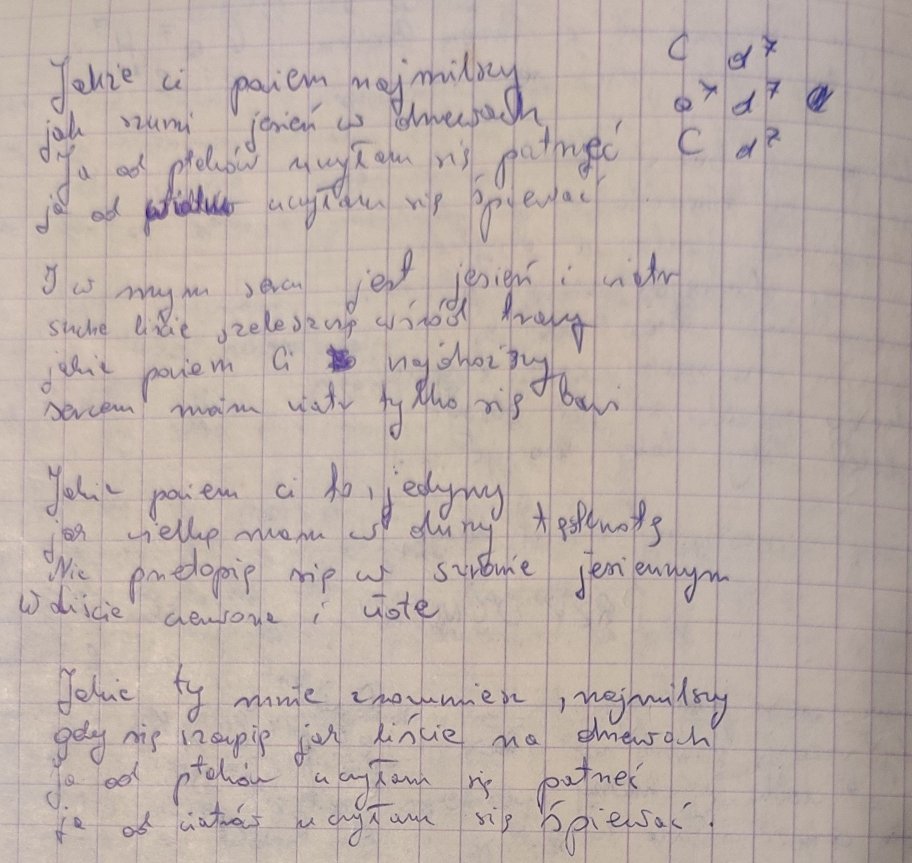 Jakże ci powiem najmilszy C d7
jak szumi jesień w drzewach a7 d7
Ja od ptaków uczyłam się patrzeć C d7
ja od wiatru uczyłam się śpiewać
I w mym sercu jest jesień i wiatr
suche liście szeleszczą wśród trawy
jakże powiem Ci najdroższy
sercem moim wiatr tylko się bawi
Jakże powiem ci to, jedyny
jak wielką mam w duszy tęsknotę
Nie przetopię się w szronie jesiennym
W liście czerwone i złote
Jakże ty mnie zrozumiesz, najmilszy
gdy się czepię jak liście na drzewach
ja od ptaków uczyłam się patrzeć
ja od wiatrów uczyłam się śpiewać.